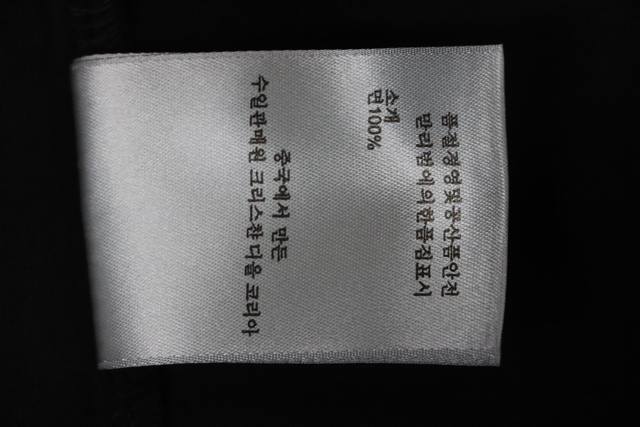 품질경영및공산품안전
관리법에의한품질표시
소개
면100%
중국에서 만든
수입판매원 크리스챤 디올 코리아